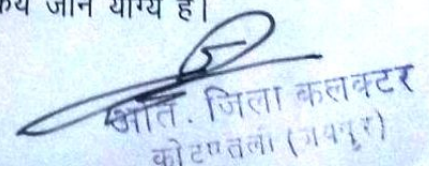 कये जाने योग्य है।
अति. जिला कलक्टर
कोटपूतली (जयपुर)